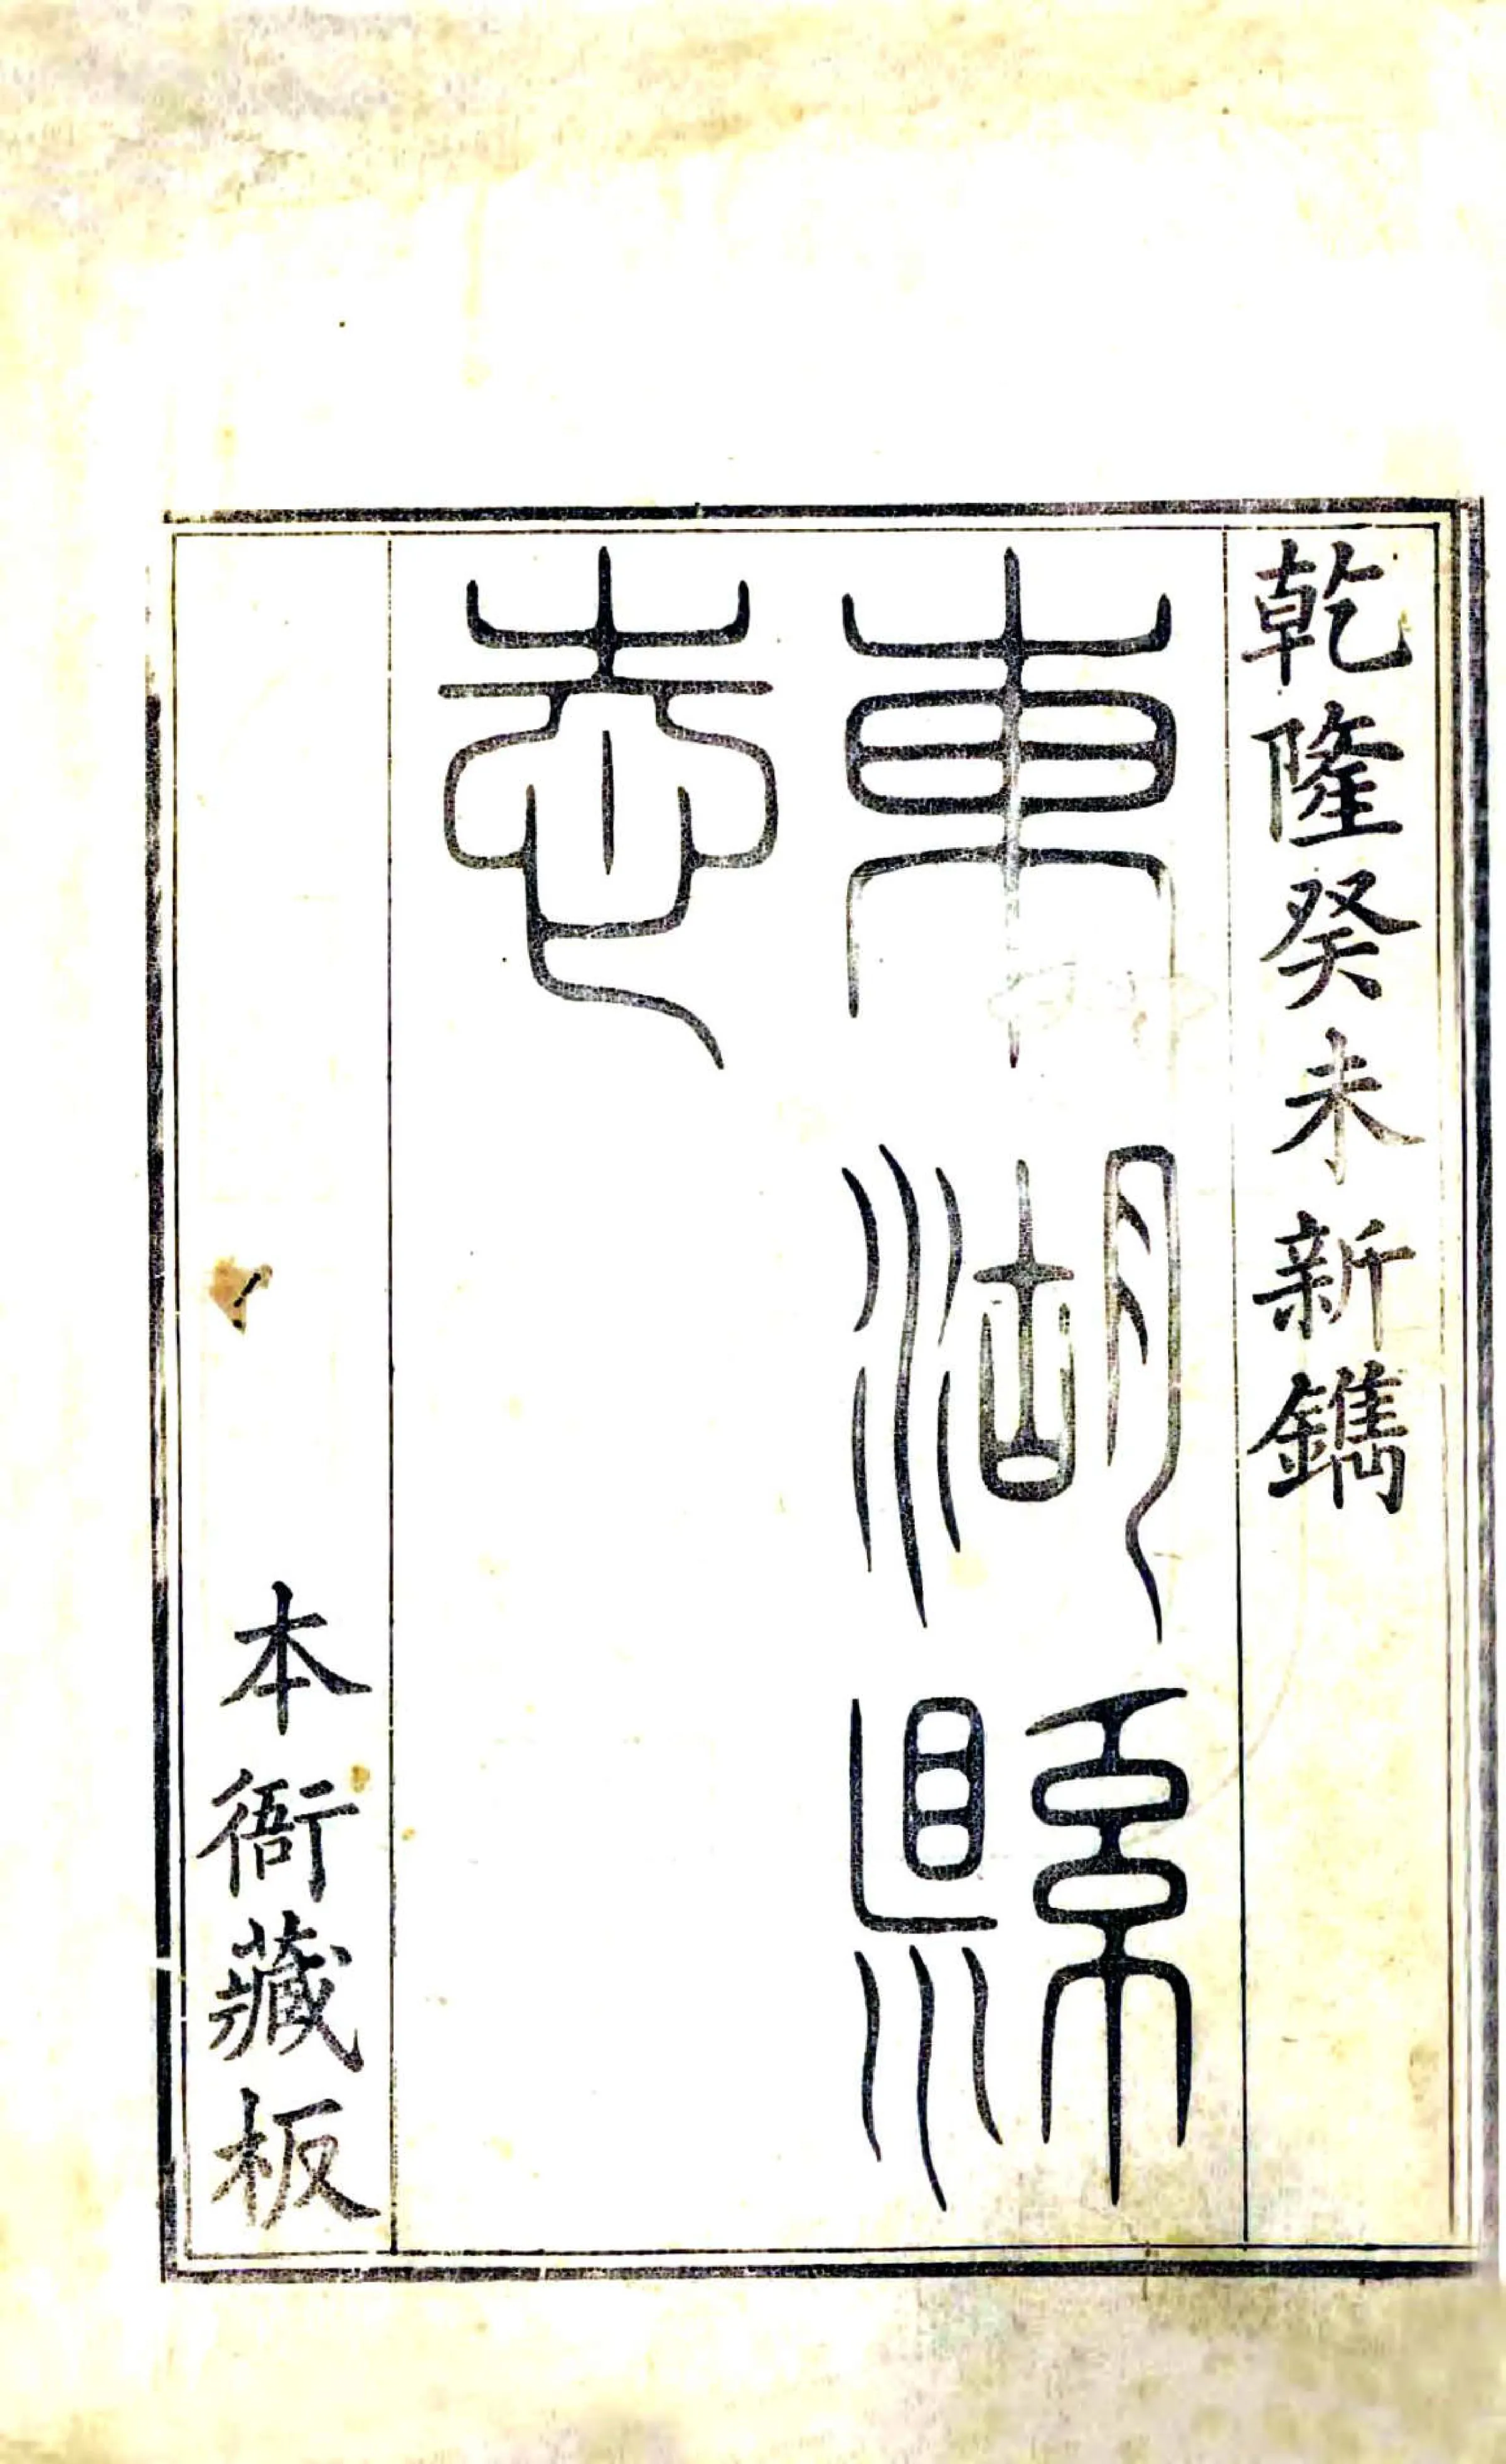 乾隆癸未新鐫
東湖縣
志
本衙藏板